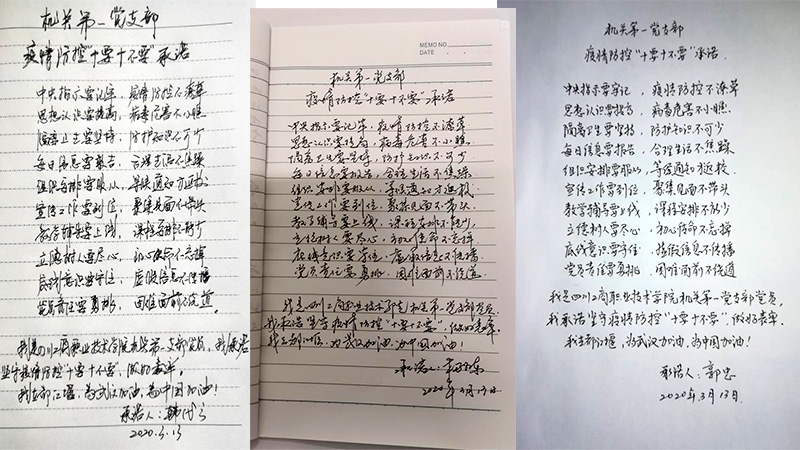 机关第一党支部
疫情防控“十要十不要”承诺
中央指示要牢记, 疫情防控不潦草
思想认识要提高, 病毒危害不小瞧
隔离卫生要坚持, 防护知识不可少
每日信息要报告, 合理生活不焦躁
组织安排要服从, 等候通知才返校
宣传工作要到位, 聚集见面不带头
教学辅导要上线, 课程安排不缺少
立德树人要尽心, 初心使命不忘掉
底线意识要守住, 虚假信息不传播
党员责任要勇挑, 困难面前不绕道。
我是四川工商职业技术学院机关第一支部党员, 我承诺
坚守疫情防控“十要十不要”, 做好表率。
我在都江堰, 为武汉加油, 为中国加油!
承诺人:
2020.3.13
MEMO NO.
DATE
机关第一党支部
疫情防控“十要十不要”承诺
中央指示要记牢, 疫情防控不潦草
思想认识要提高, 病毒危害不小瞧
隔离卫生要坚持, 防护知识不可少
每日信息要报告, 合理生活不焦躁
组织安排要服从, 等候通知才返校
宣传工作要到位, 聚集见面不带头
教学辅导要上线, 课程安排不缺少
立德树人要尽心, 初心使命不忘掉
底线意识要守住, 虚假信息不传播
党员责任要勇挑, 困难面前不绕道
我是四川工商职业技术学院机关第一党支部党员
我承诺坚守疫情防控“十要十不要”, 做好表率
我在都江堰, 为武汉加油, 为中国加油!
承诺人:
2020年3月13日
机关第一党支部
疫情防控“十要十不要”承诺
中央指示要牢记, 疫情防控不潦草
思想认识要提高, 病毒危害不小瞧
隔离卫生要坚持, 防护知识不可少
每日信息要报告, 合理生活不焦躁
组织安排要服从, 等候通知才返校
宣传工作要到位, 聚集见面不带头
教学辅导要上线, 课程安排不缺少
立德树人要尽心, 初心使命不忘掉
底线意识要守住, 虚假信息不传播
党员责任要勇挑, 困难面前不绕道
我是四川工商职业技术学院机关第一支部党员,
我承诺坚守疫情防控“十要十不要”, 做好表率.
我在都江堰, 为武汉加油, 为中国加油!
承诺人: 郭忠
2020年3月13日.